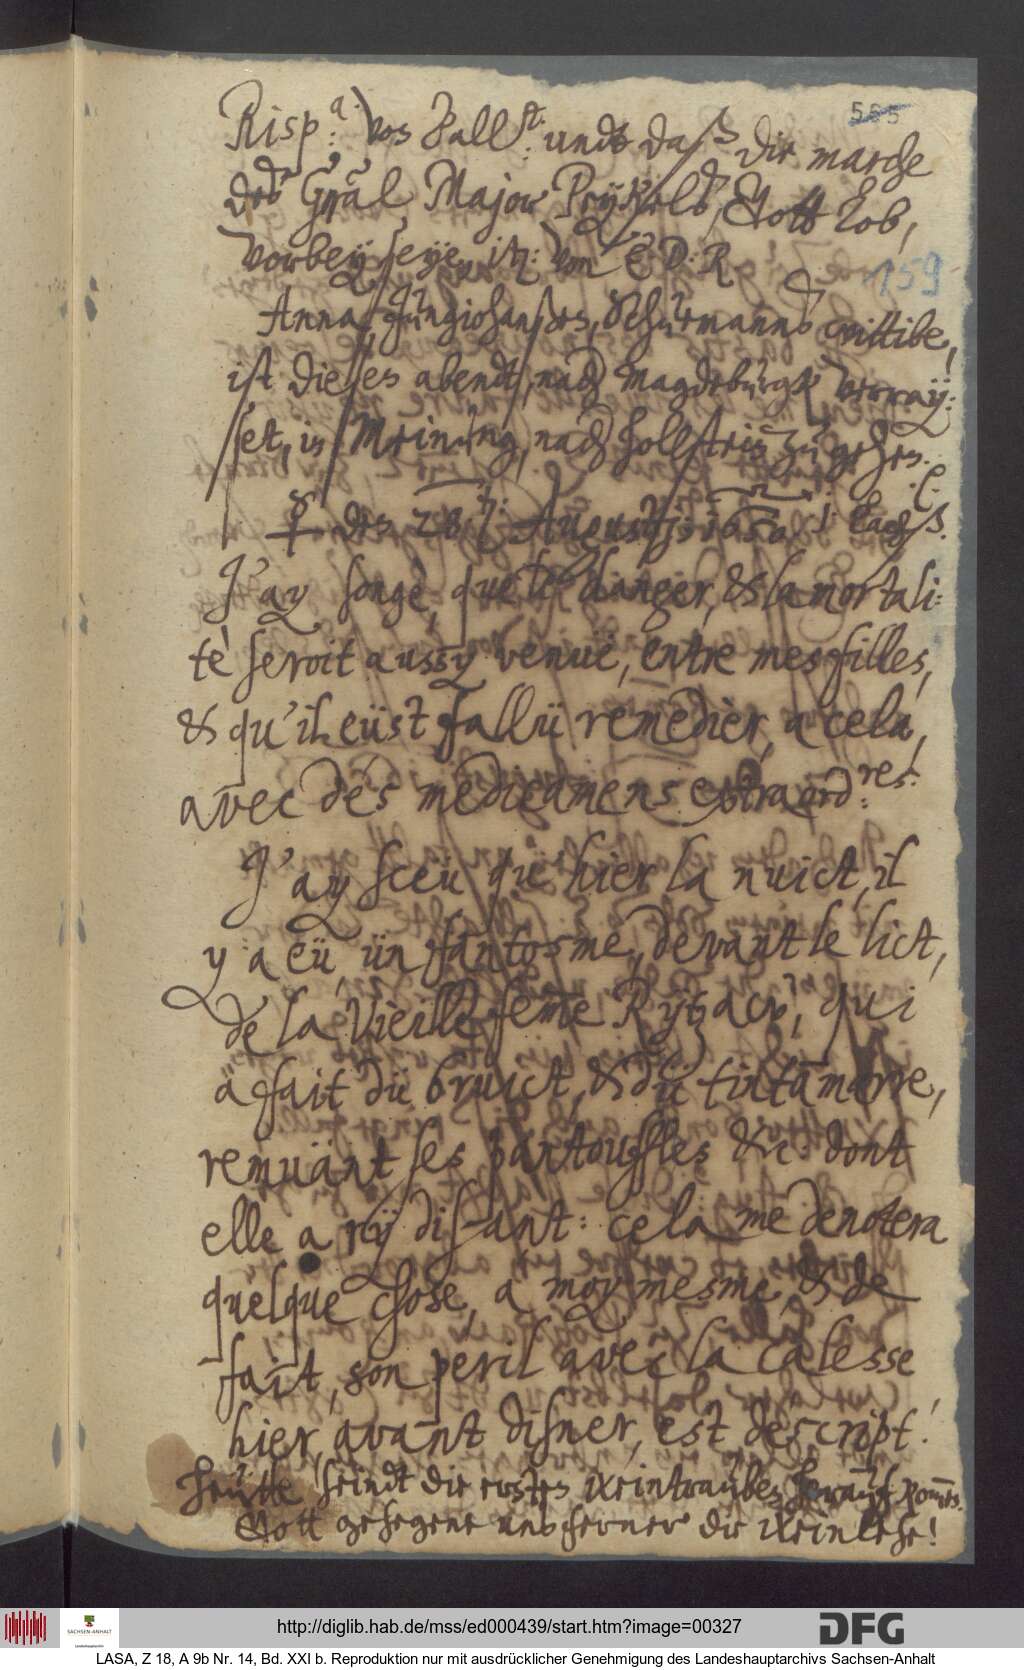 585
Risp:ᵃ: Von Ballst: undt daß die marche
des Gräal Major Pfützels, Gott lob,
vorbey seye, itz: von C. D. R.
159
Anna, Jungiohansses, Schürmanns wittibe,
ist dieses abendts, nach Magdeburgk verray:
set, in Meinüng, nach hollstein zu gehen.
☿ den 28. Augustj: 1650.
J'ay songè, que le danger, & la mortali:
tè seroit aussy venuë, entre mes filles,
& qu'il eüst fallü remedièr, a cela,
avec des medicamens extraord:res.
J'ay sceü que hier la nuict, il
y a eü, ün fantosme, devant le lict,
de la Vieille feme Rytzacr, qui
a fait dü bruict, & dü tintamarre,
remuänt ses pantouffles &c: dont
elle a rÿ disant: cela me denotera
quelque chose, a moy mesme, & de
fait, son peril avec la calesse
hier, avant disner, est descript!
Heütte seindt die ersten Weintrauben herauf kom̄en.
Gott gesegene uns ferner die Weinlese!
http://diglib.hab.de/mss/ed000439/start.htm?image=00327
SACHSEN-ANHALT
Landeshauptarchiv
DFG
LASA, Z 18, A 9b Nr. 14, Bd. XXI b. Reproduktion nur mit ausdrücklicher Genehmigung des Landeshauptarchivs Sachsen-Anhalt